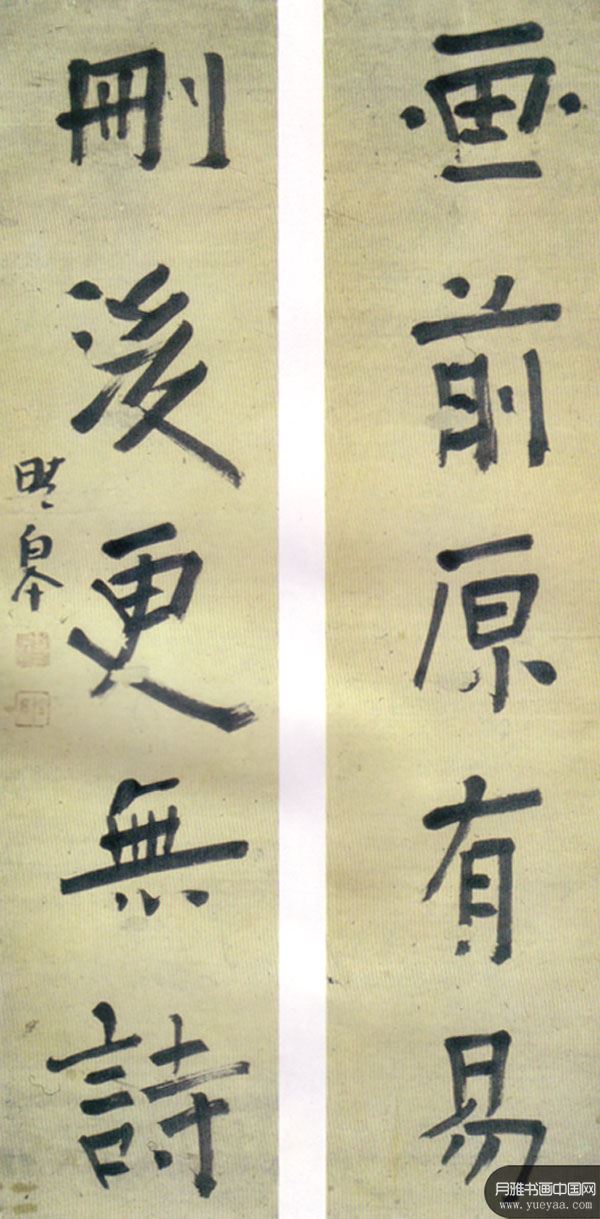 画前原有易
刪後更無詩
月雅书画中国网
www.yueyaa.com